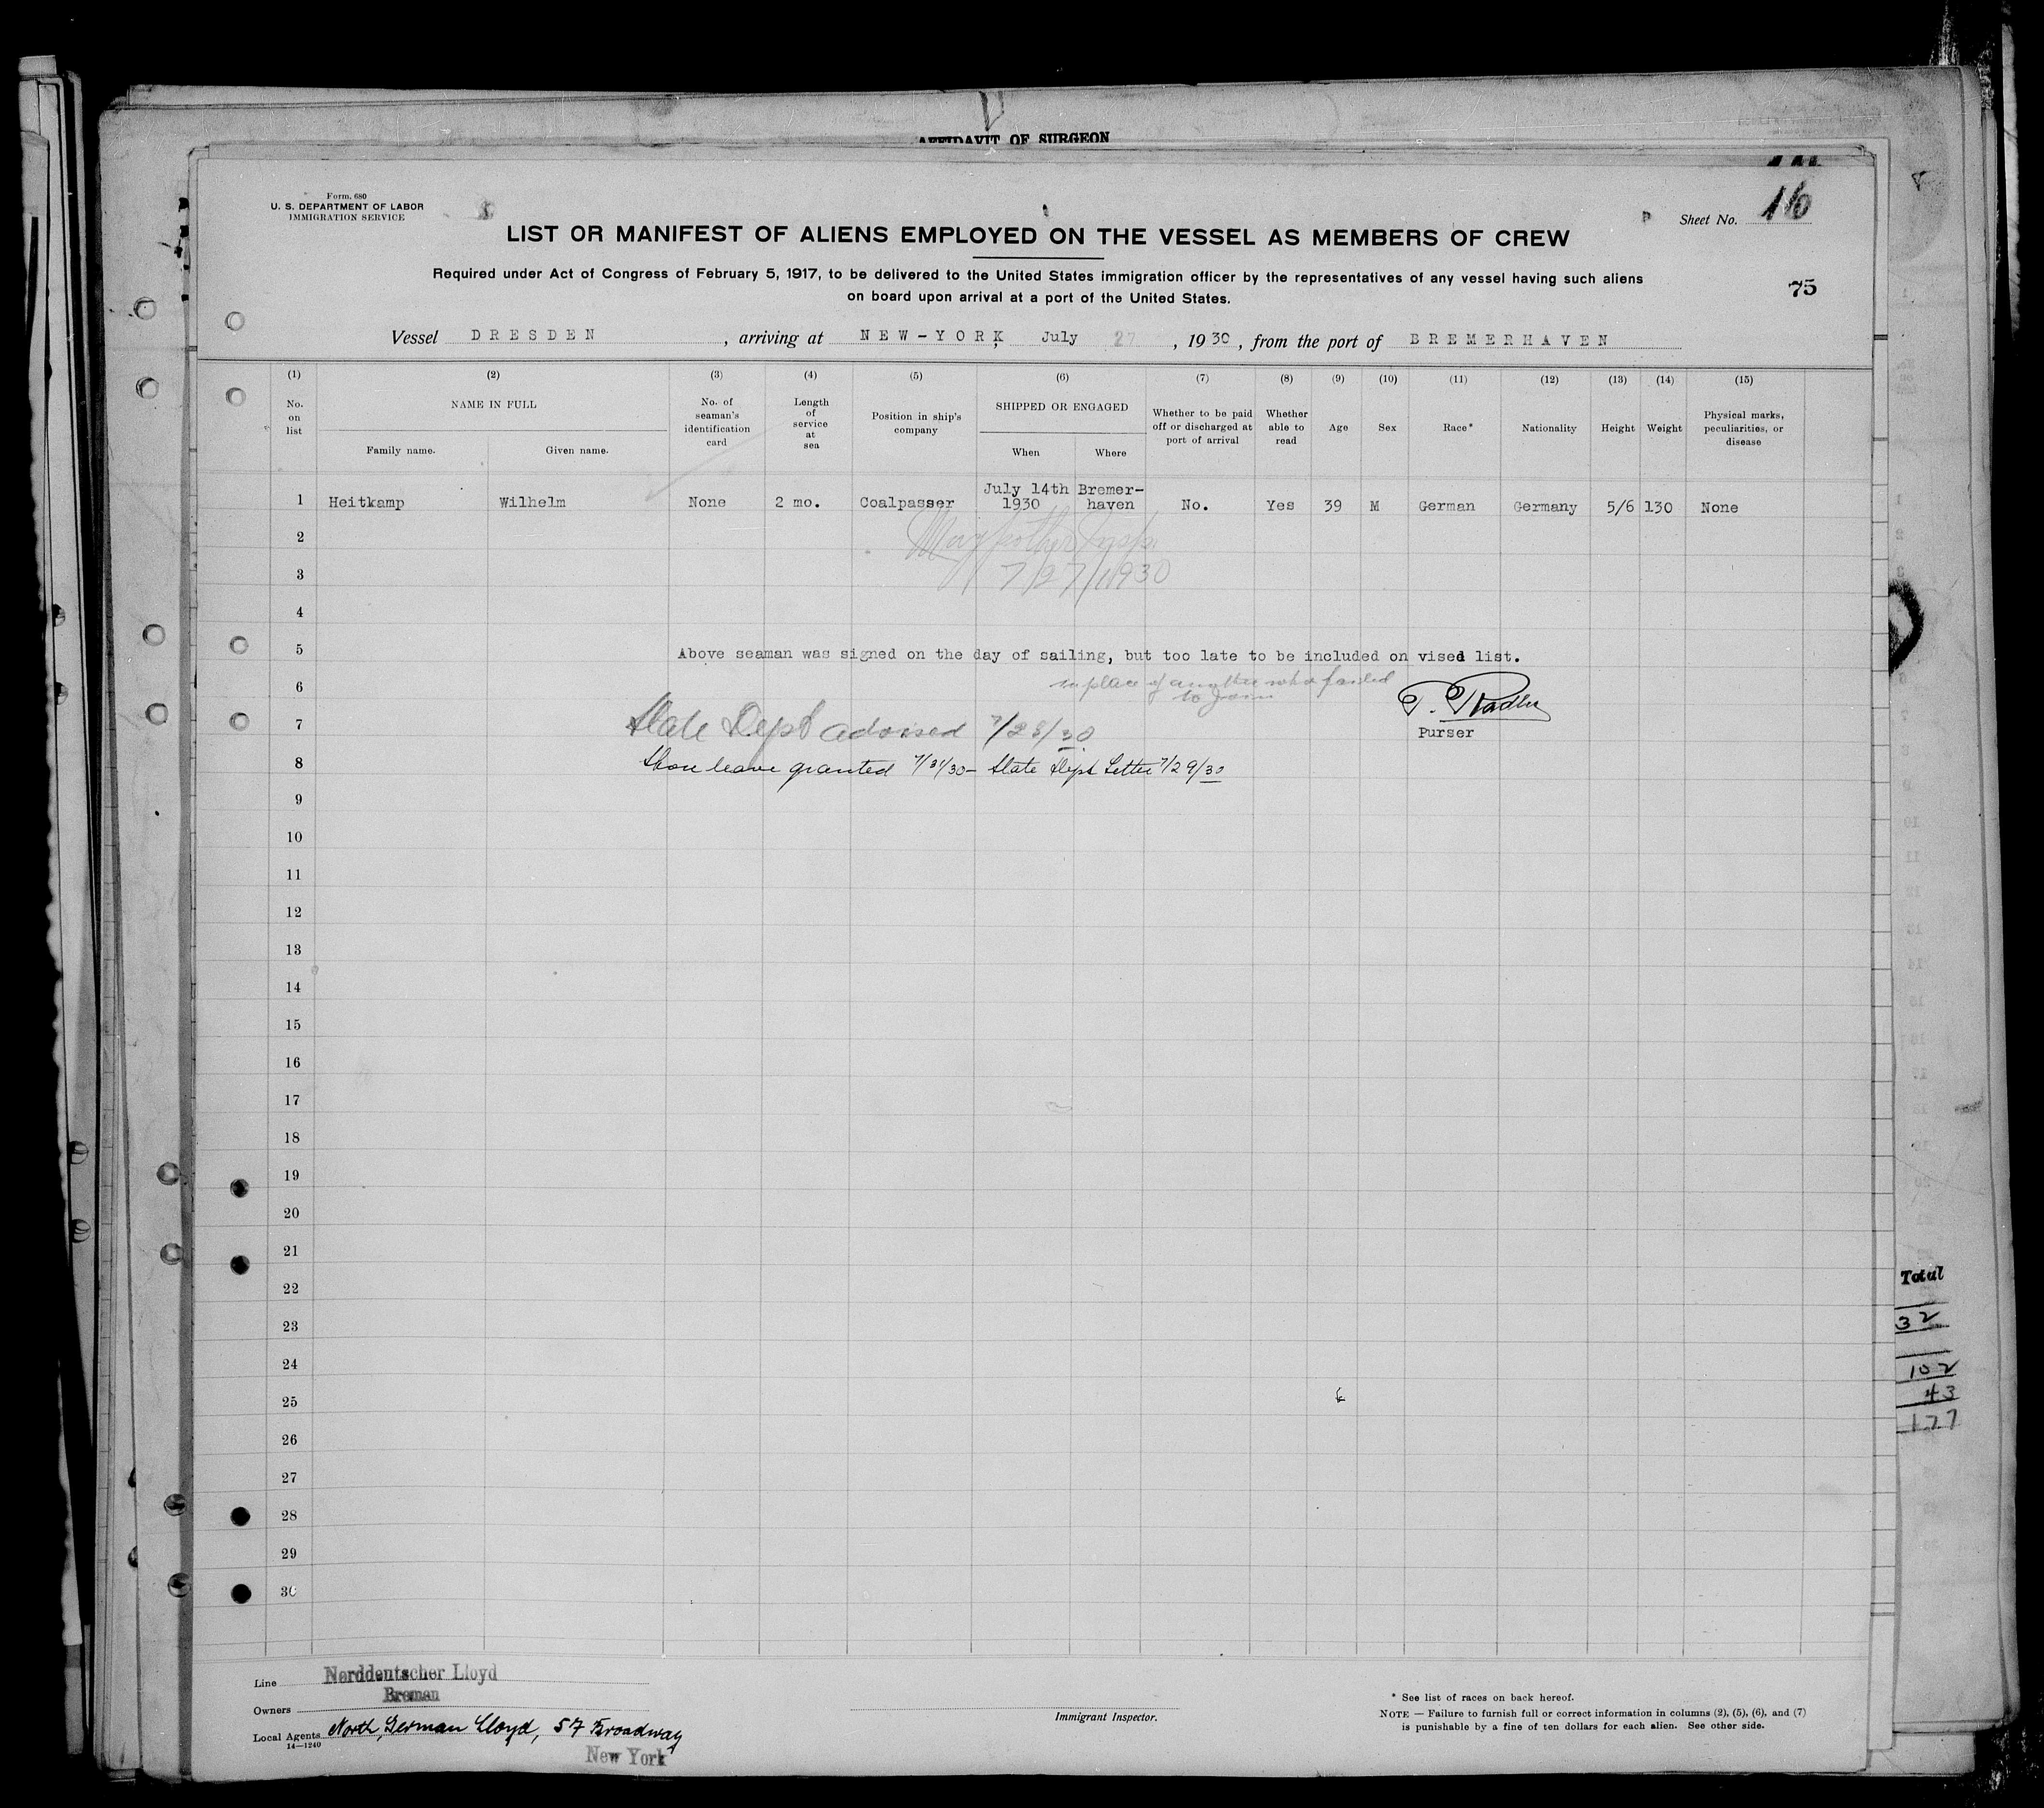 AFFIDAVIT OF SURGEON
Form. 680
U. S. DEPARTMENT OF LABOR
IMMIGRATION SERVICE
Sheet No. 16
LIST OR MANIFEST OF ALIENS EMPLOYED ON THE VESSEL AS MEMBERS OF CREW
Required under Act of Congress of February 5, 1917, to be delivered to the United States immigration officer by the representatives of any vessel having such aliens
on board upon arrival at a port of the United States.
75
Vessel DRESDEN, arriving at NEW-YORK, July 27, 1930, from the port of BREMERHAVEN
(1) (2) (3) (4) (5) (6) (7) (8) (9) (10) (11) (12) (13) (14) (15)
No. on list
NAME IN FULL
Family name. Given name.
No. of seaman's identification card
Length of service at sea
Position in ship's company
SHIPPED OR ENGAGED
When Where
Whether to be paid off or discharged at port of arrival
Whether able to read
Age
Sex
Race*
Nationality
Height
Weight
Physical marks, peculiarities, or disease
1 Heitkamp Wilhelm None 2 mo. Coalpasser July 14th 1930 Bremer-haven No. Yes 39 M German Germany 5/6 130 None
2
3 7/27/1930
4
5 Above seaman was signed on the day of sailing, but too late to be included on vised list.
6 in place of another who failed
to join
7 State Dept advised 7/28/30
Purser
8 Shore leave granted 7/31/30 - State Dept Letter 7/29/30
9
10
11
12
13
14
15
16
17
18
19
20
21
22
23
24
25
26
27
28
29
30
Total
32
102
43
177
Line Norddeutscher Lloyd
Bremen
Owners
Local Agents North German Lloyd, 57 Broadway
14—1240
New York
Immigrant Inspector.
* See list of races on back hereof.
NOTE — Failure to furnish full or correct information in columns (2), (5), (6), and (7)
is punishable by a fine of ten dollars for each alien. See other side.